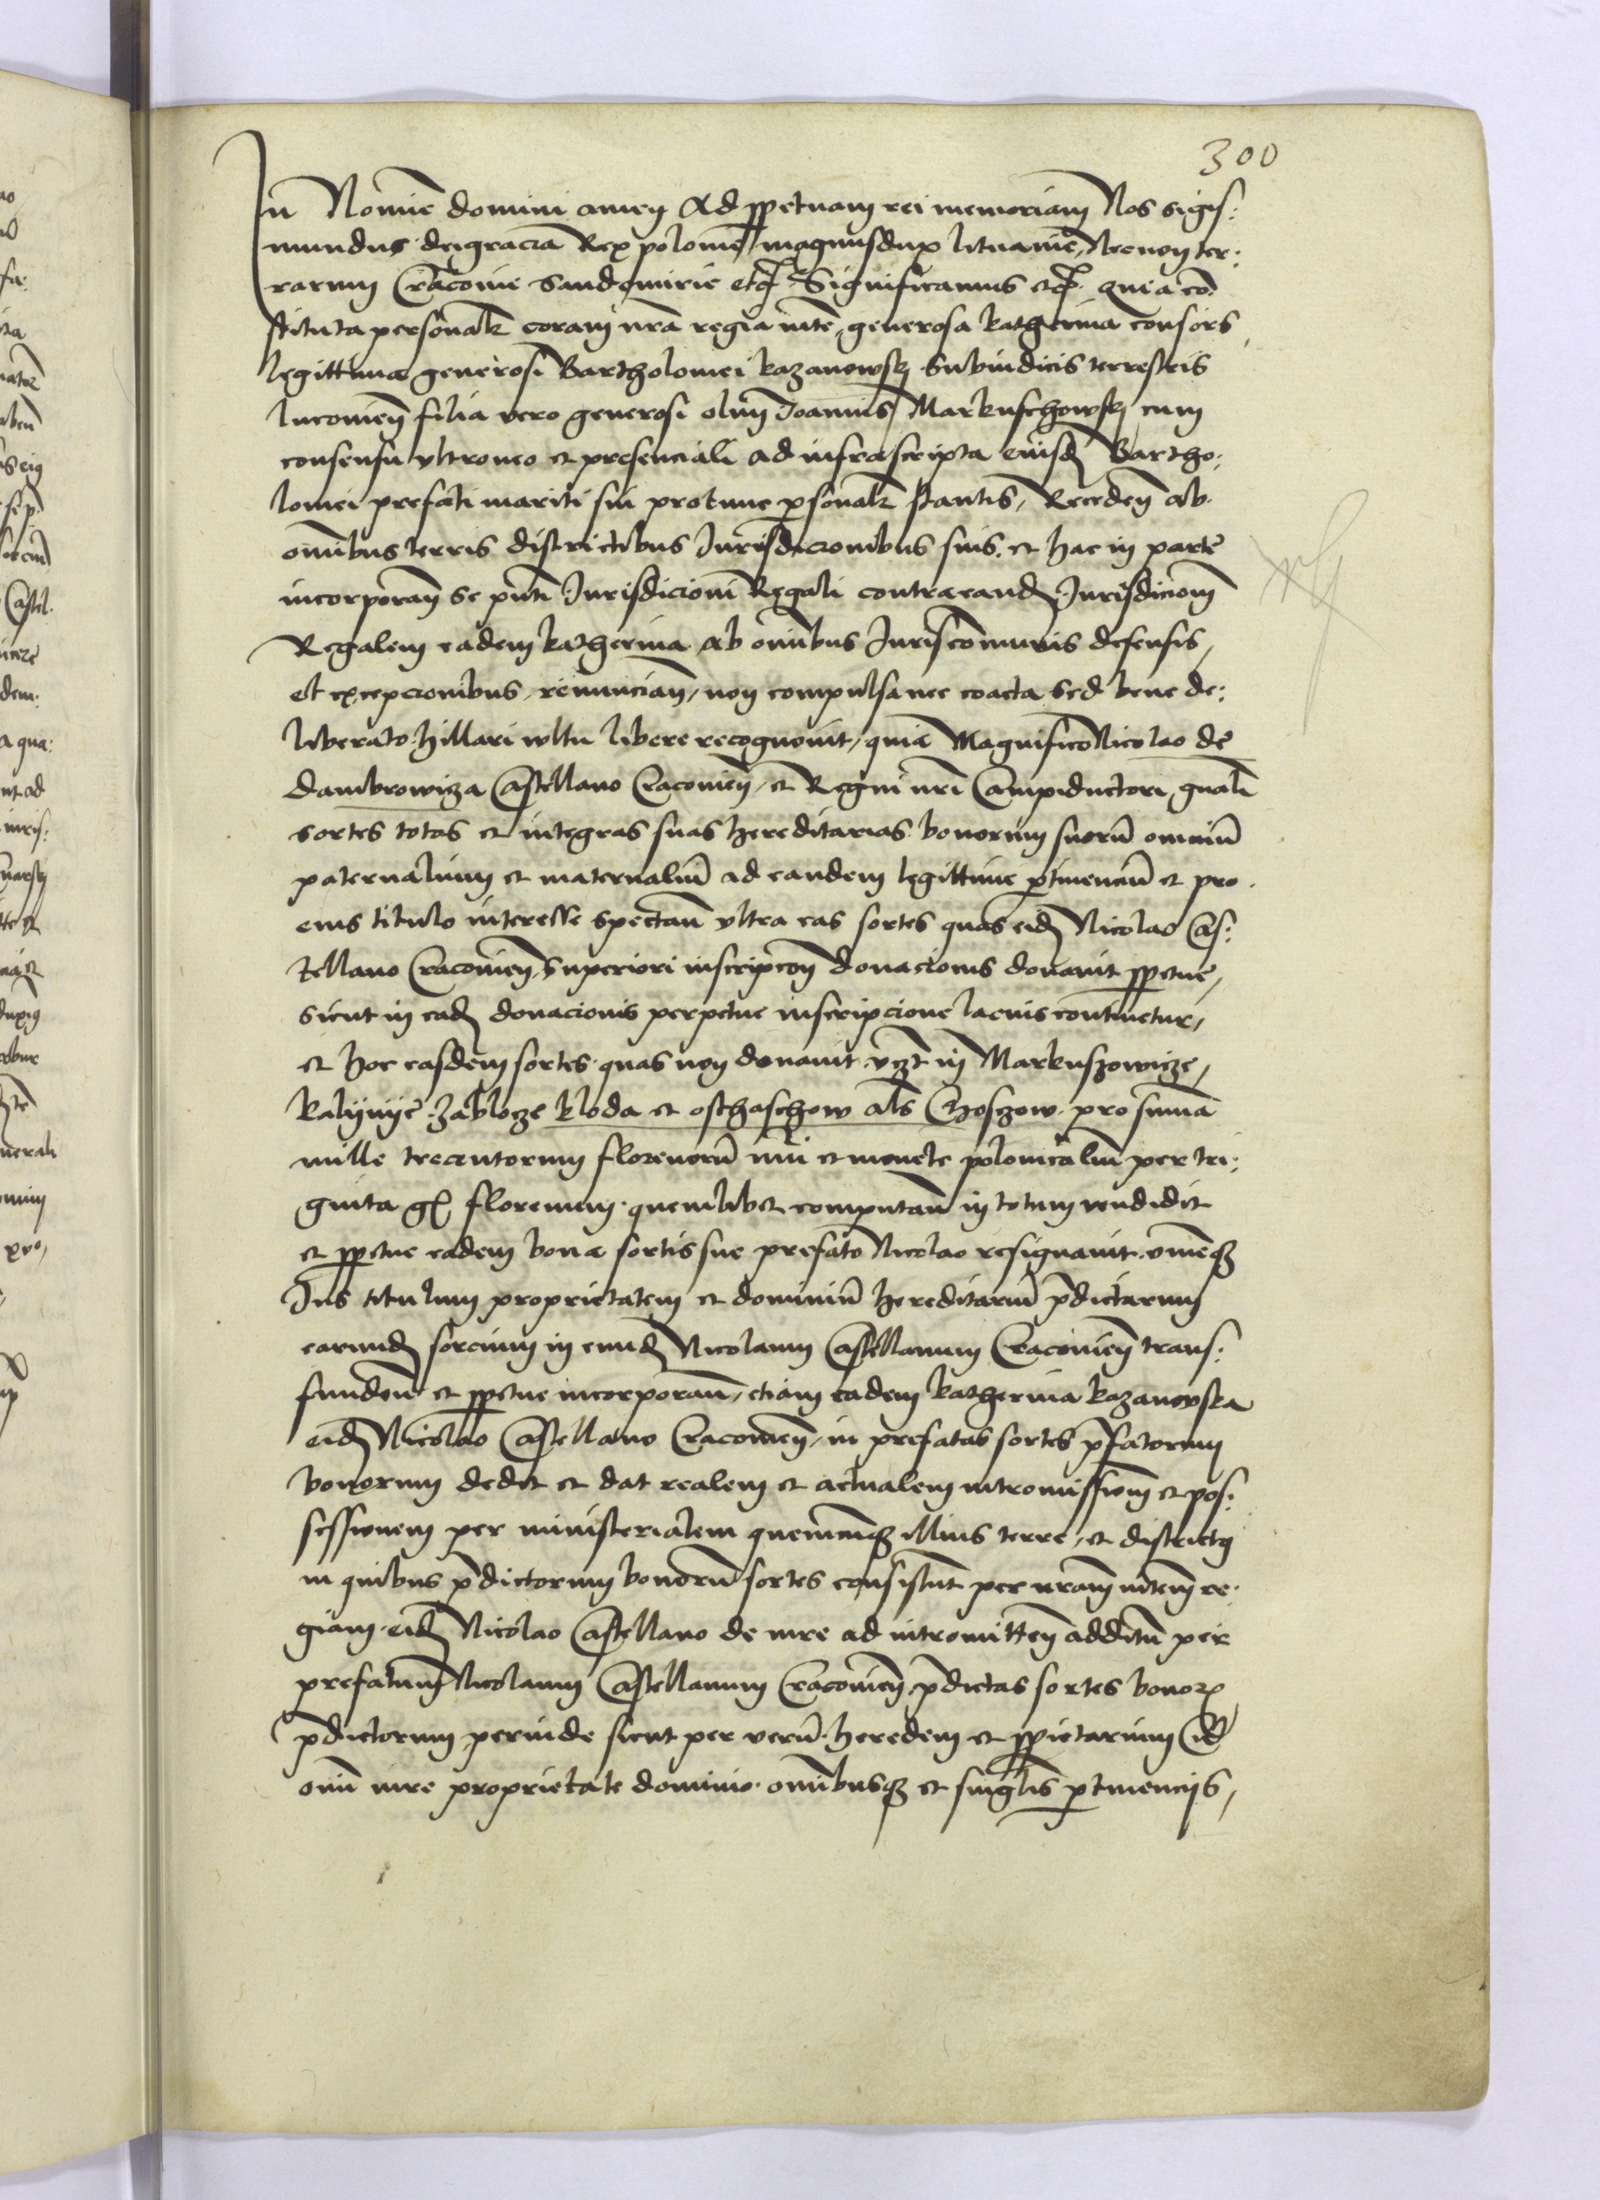 300
In Nomine domini amen Ad ppetuam rei memoriam Nos Sigis:
mundus deigracia Rex polonie magnusdux lituanie Necnon ter:
rarum Cracovie Sandomirie etc Significamus etc quia co
stituta personalr coram nra regia mte generosa katherina consors
legittima generosi Bartholomei kazanowsky Subiudicis terrestris
lucovien filia vero generosi olim Joannis Markuschowsky cum
consensu vltroneo et presenciali ad infrascripta eiusd Bartho:
lomei prefati mariti sui protunc psonalr stantis, Receden ab
omibus terris districtibus Jurisdicionibus suis, et hac in parte
incorporan se pnti Jurisdicioni Regali contra eand Jurisdiciom
Regalem eadem katherina ab omibus Juriscomunis defensis,
et excepcionibus, renuncian, non compulsa nec coacta Sed bene de:
liberato hillari wltu libere recognovit, quia Magnifico Nicolao de
dambrowicza Castellano Cracovien, et Regni nri Campiductori gnali
sortes totas et integras suas hereditarias bonorum suoru omniu
paternalium et maternaliu ad eandem legittime ptinenciu et pro
eius titulo interesse spectan vltra eas sortes quas eid Nicolao Cas:
tellano Cracovien Superiori inscripcon donacionis donavit ppetue,
Sicut in ead donacionis perpetue inscripcione lacius continetur,
et hoc easdem sortes quas non donavit vzt in Markuszowicze,
kalynye zablocze kloda et osthaschow als Choszow pro suma
mille trecentorum florenoru nri et monete polonicaliu per tri:
ginta gr florenum quemlibet computan in totum vendidit
et ppetue eadem bona sortis sue prefato Nicolao resignavit omeq
Jus titulum proprietatem et dominiu hereditariu pdictarum
earund sorcium in eund Nicolaum Castellanum Cracovien trans:
funden et ppetue incorporan, etiam eadem katherina kazanowska
eid Nicolao Castellano Cracovien, in prefatas sortes pfatorum
bonorum dedit et dat realem et actualem intromissiom et pos:
sessionem per ministerialem quemcumq illius terre, et districtus
in quibus pdictorum bonoru sortes consistut per nram mtem re:
giam eid Nicolao Castellano de iure ad intromitten additu per
prefatum Nicolaum Castellanum Cracovien pdictas sortes bonor
pdictorum perinde sicut per veru heredem et pprietarium cu
omi iure proprietate dominio omibusq et singlis ptinenciis,